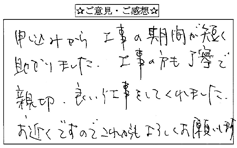 ☆ご意見・ご感想☆
申込みから 工事の期間が短く
助かりました. 工事の方も丁寧で
親切. 良い工事をしてくれました.
お近くですのでこれからもよろしくお願いします